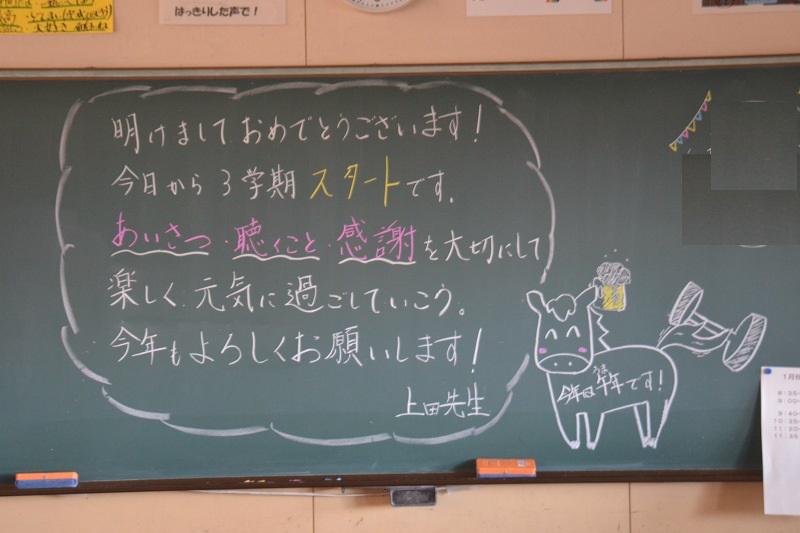 はっきりした声で！
明けましておめでとうございます！
今日から3学期スタートです。
あいさつ・聴くこと・感謝を大切にして
楽しく元気に過ごしていこう。
今年もよろしくお願いします！
上田先生
今年は午年です！
うま
1月